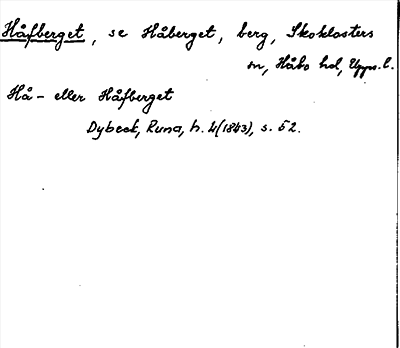 Håfberget, se Håberget, berg, Skoklosters
sn, Håbo hd, Upps. l.
Hå- eller Håfberget
Dybeck, Runa, h. 4 (1843), s. 52.